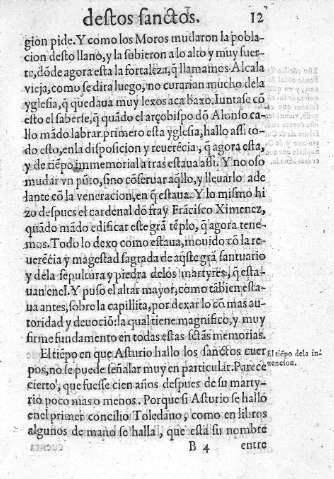 destos sanctos. 12
gion pide. Y como los Moros mudaron la pobla-
cion desto llano, y la subieron a lo alto y muy fuer-
te, dõde agora esta la fortaleza, q̃ llamamos Alcala
vieja, como se dira luego, no curarian mucho dela
yglesia, q̃ quedaua muy lexos aca baxo. Iuntase cõ
esto el saberse, q̃ quãdo el arçobispo dõ Alonso ca-
llo mãdo labrar primero esta yglesia, hallo assi to-
do esto, en la disposicion y reuerẽcia, q̃ agora esta,
y de tiẽpo immemorial a tras estaua assi. Y no oso
mudar vn pũto, sino cõseruar aq̃llo, y lleuarlo ade
lante cõ la veneracion, en q̃ estaua. Y lo mismo hi
zo despues el cardenal dõ fray Frãcisco Ximenez,
quãdo mãdo edificar este grã tẽplo, q̃ agora tene-
mos. Todo lo dexo como estaua, mouido cõ la re-
uerẽcia y magestad sagrada de aq̃ste grã santuario
y dela sepultura y piedra delos martyres, q̃ esta-
uan enel. Y puso el altar mayor, como tãbien esta-
ua antes, sobre la capillita, por dexar lo con mas au-
toridad y deuociõ: la qual tiene magnifico, y muy
firme fundamento en todas estas sctãs memorias.
El tiẽpo en que Asturio hallo los sanctos cuer
pos, no se puede señalar muy en particular. Parece
cierto, que fuesse cien años despues de su marty-
rio poco mas o menos. Porque si Asturio se hallo
en el primer concilio Toledano, como en libros
algunos de mano se halla, que esta su nombre
El tiẽpo dela in-
uencion.
B 4 entre